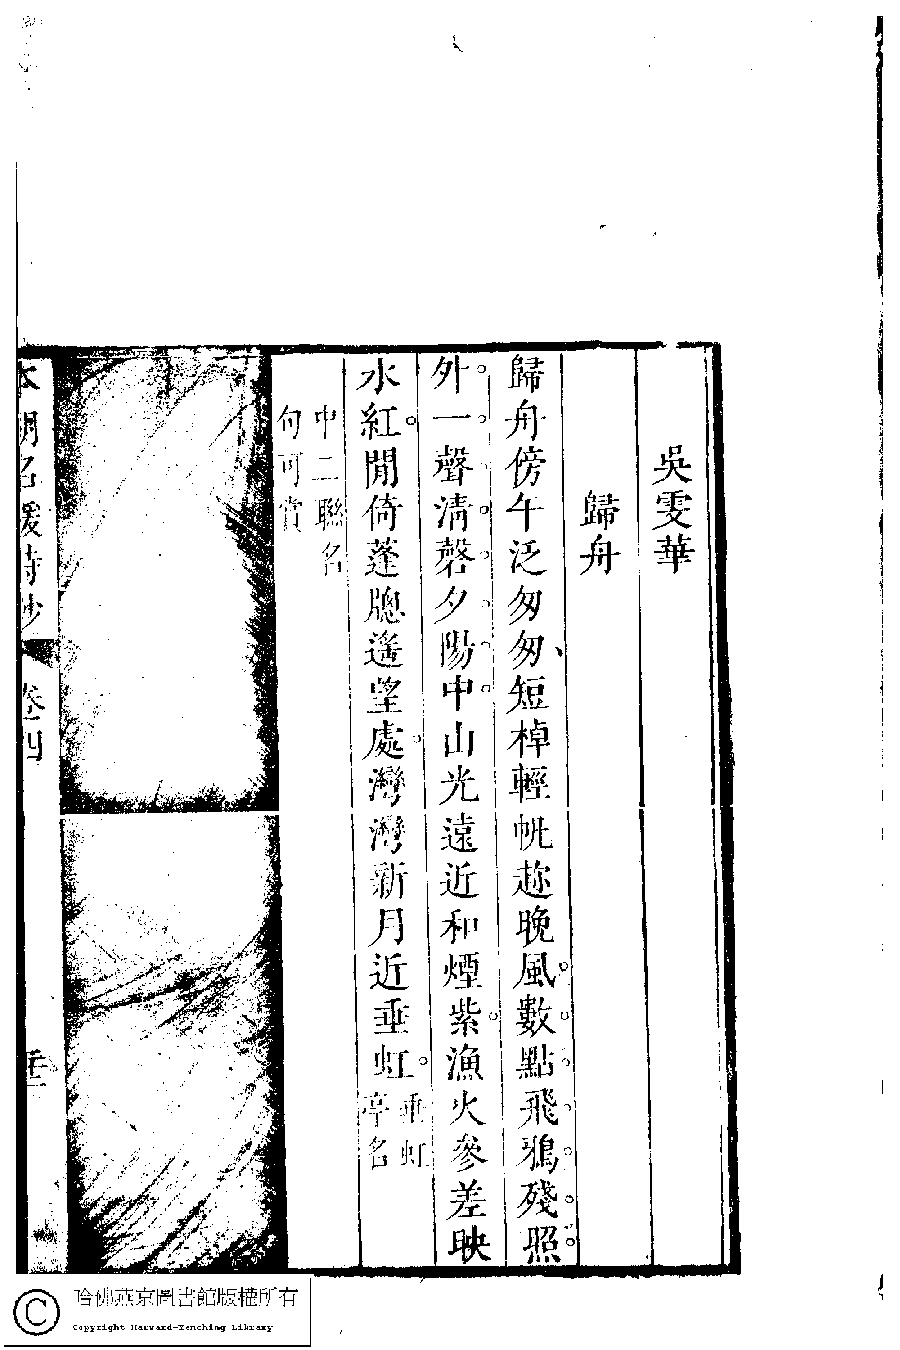 吳雯華
歸舟
歸舟傍午泛匆匆短棹輕帆趂晚風數點飛鴉殘照
外一聲清磬夕陽中山光遠近和煙紫漁火參差映
水紅閒倚蓬牕遙望處灣灣新月近垂虹
垂虹
亭名
中二聯名
句可賞
本朝名媛詩鈔
卷四
哈佛燕京圖書館版權所有
Copyright Harvard-Yenching Library